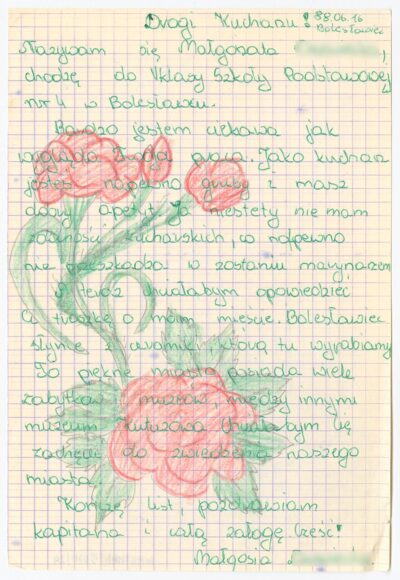 Drogi Kucharzu! 88.06.16
Bolesławiec
Nazywam się Małgorzata
chodzę do V klasy Szkoły Podstawowej
nr 4 w Bolesławcu.
Bardzo jestem ciekawa jak
wygląda Twoja praca. Jako kucharz
jesteś napewno gruby i masz
dobry apetyt. Ja niestety nie mam
zdolności kucharskich, co napewno
nie przeszkadza w zostaniu marynarzem.
A teraz chciałabym opowiedzieć
Ci troszkę o moim mieście. Bolesławiec
słynie z ceramiki, którą tu wyrabiamy.
To piękne miasto posiada wiele
zabytków i muzeów, między innymi
muzeum Kutuzowa. Chciałabym Cię
zachęcić do zwiedzenia naszego
miasta.
Kończę list, pozdrawiam
kapitana i całą załogę. Cześć!
Małgosia